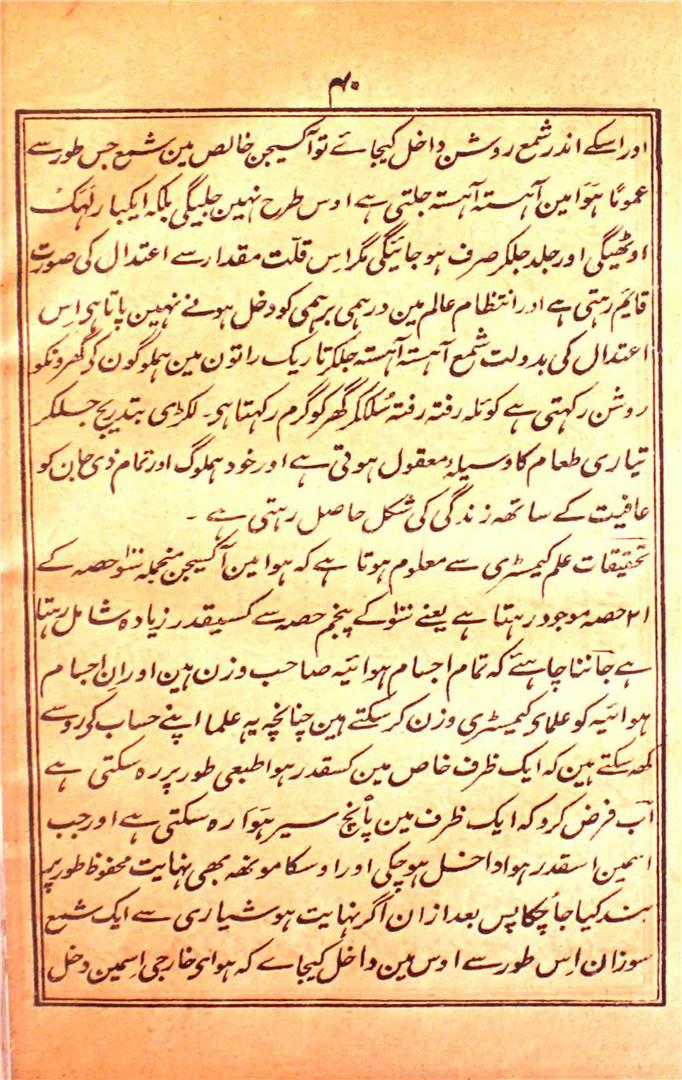 ۴۰
اور اسکے اندر شمع روشن داخل کیجائے تو آکسیجن خالص مین شمع جس طور سے
عمومًا ہَوَا مین آہستہ آہستہ جلتی ہے اوس طرح نہین جلیگی بلکہ ایکبار لَہَک
اوٹھیگی اور جلد جلکر صرف ہو جائیگی مگر اِس قلّت مقدار سے اعتدال کی صورت
قایم رہتی ہے اور انتظام عالم مین درہمی برہمی کو دخل ہونے نہین پاتا ہی اِس
اعتدال کی بدولت شمع آہستہ آہستہ جلکر تاریک راتون مین ہملوگون کے گھرونکو
روشن رکہتی ہے کوئلہ رفتہ رفتہ سُلگکر گھر کو گرم رکہتا ہی۔ لکڑی بتدریج جلکر
تیاری طعام کا وسیلہ معقول ہوتی ہے اور خود ہملوگ اور تمام ذی جان کو
عافیت کے ساتھہ زندگی کی شکل حاصل رہتی ہے ۔
تحقیقات علم کیمسٹری سے معلوم ہوتا ہے کہ ہوا مین آکسیجن منجملہ سَو حصہ کے
۲۱ حصہ موجود رہتا ہے یعنے سَو کے پنجم حصہ سے کسیقدر زیادہ شامل رہتا
ہے جاننا چاہئے کہ تمام اجسام ہوائیہ صاحب وزن ہین اور اِن اجسام
ہوائیہ کو علمای کیمسٹری وزن کر سکتے ہین چنانچہ یہ علما اپنے حساب کی رو سے
کھہ سکتے ہین کہ ایک ظرف خاص مین کسقدر ہوا طبعی طور پر رہ سکتی ہے
اب فرض کرو کہ ایک ظرف مین پانچ سیر ہَوَا رہ سکتی ہے اور جب
اسمین اسقدر ہوا داخل ہو چکی اور اوسکا مونھہ بھی نہایت محفوظ طور پر
بند کیا جا چکا پس بعد ازان اگر نہایت ہوشیاری سے ایک شمع
سوزان اِس طور سے اوس مین داخل کیجاے کہ ہوای خارجی اِسمین دخل